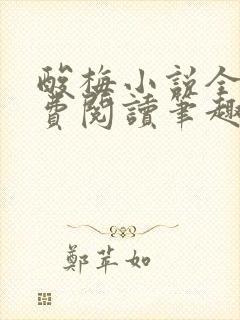 酸梅小说全
費閱讀筆趣
鄭苹如